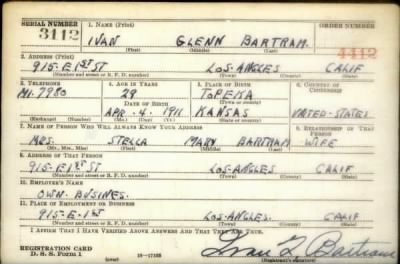 SERIAL NUMBER 1. NAME (Print) ORDER NUMBER
3112 IVAN GLENN BARTRAM. 4412
(First) (Middle) (Last)
2. ADDRESS (Print)
915-E 1ST ST LOS-ANGLES CALIF
(Number and street or R. F. D. number) (Town) (County) (State)
3. TELEPHONE 4. AGE IN YEARS 5. PLACE OF BIRTH 6. COUNTRY OF CITIZENSHIP
MI. 7980 29 TOPEKA
DATE OF BIRTH (Town or county)
APR. 4. 1911 KANSAS UNITED-STATES
(Exchange) (No.) (Mo.) (Day) (Yr.) (State or country)
7. NAME OF PERSON WHO WILL ALWAYS KNOW YOUR ADDRESS 8. RELATIONSHIP OF THAT PERSON
MRS. STELLA MARY BARTRAM WIFE
(Mr., Mrs., Miss) (First) (Middle) (Last)
9. ADDRESS OF THAT PERSON
915-E 1ST ST LOS-ANGLES CALIF
(Number and street or R. F. D. number) (Town) (County) (State)
10. EMPLOYER'S NAME
OWN. BUSINES.
11. PLACE OF EMPLOYMENT OR BUSINESS
915-E-1ST LOS-ANGLES. CALIF
(Number and street or R. F. D. number) (Town) (County) (State)
I AFFIRM THAT I HAVE VERIFIED ABOVE ANSWERS AND THAT THEY ARE TRUE.
REGISTRATION CARD
D. S. S. Form 1 (over) 16—17105 (Registrant's signature)